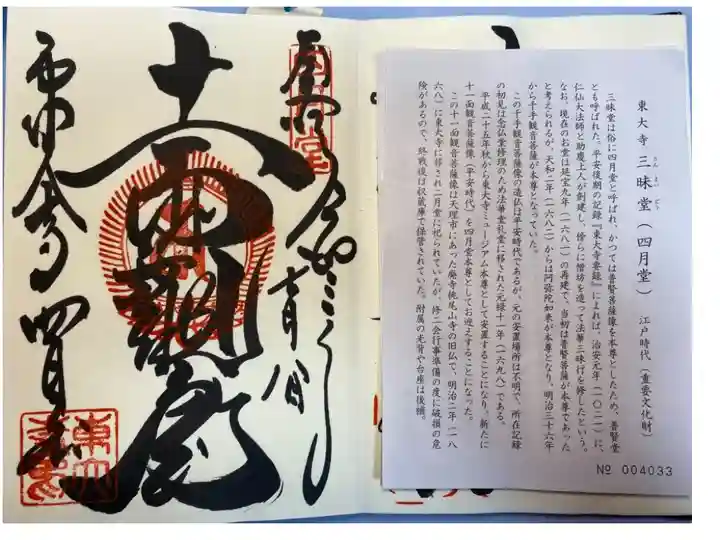 奉拝
十一面観音
東大寺四月堂
東大寺 三昧堂(四月堂) 江戸時代(重要文化財)
さんまいどう
三昧堂は俗に四月堂と呼ばれ、かつては普賢菩薩像を本尊としたため、普賢堂
とも呼ばれた。平安後期の記録『東大寺要録』によれば、治安元年(一〇二一)に、
仁仙大法師と助慶上人が創建し、傍らに僧坊を造って法華三昧行を修したという。
なお、現在のお堂は延宝九年(一六八一)の再建で、当初は普賢菩薩が本尊であった
と考えられるが、天和二年(一六八二)からは阿弥陀如来が本尊となり、明治三十六年
から千手観音菩薩が本尊となっていた。
この千手観音菩薩像の造仏は平安時代であるが、元の安置場所は不明で、所在記録
の初見は念仏堂修理のため法華堂礼堂に移された元禄十一年(一六九八)である。
平成二十五年秋から東大寺ミュージアム本尊として安置することになり、新たに
十一面観音菩薩像(平安時代)を四月堂本尊としてお迎えすることになった。
この十一面観音菩薩像は天理市にあった廃寺桃尾山寺の旧仏で、明治二年(一八
六八)に東大寺に移され二月堂に祀られていたが、修二会行事準備の度に破損の危
険があるので、終戦後は収蔵庫で保管されていた。附属の光背や台座は後補。
№ 004033